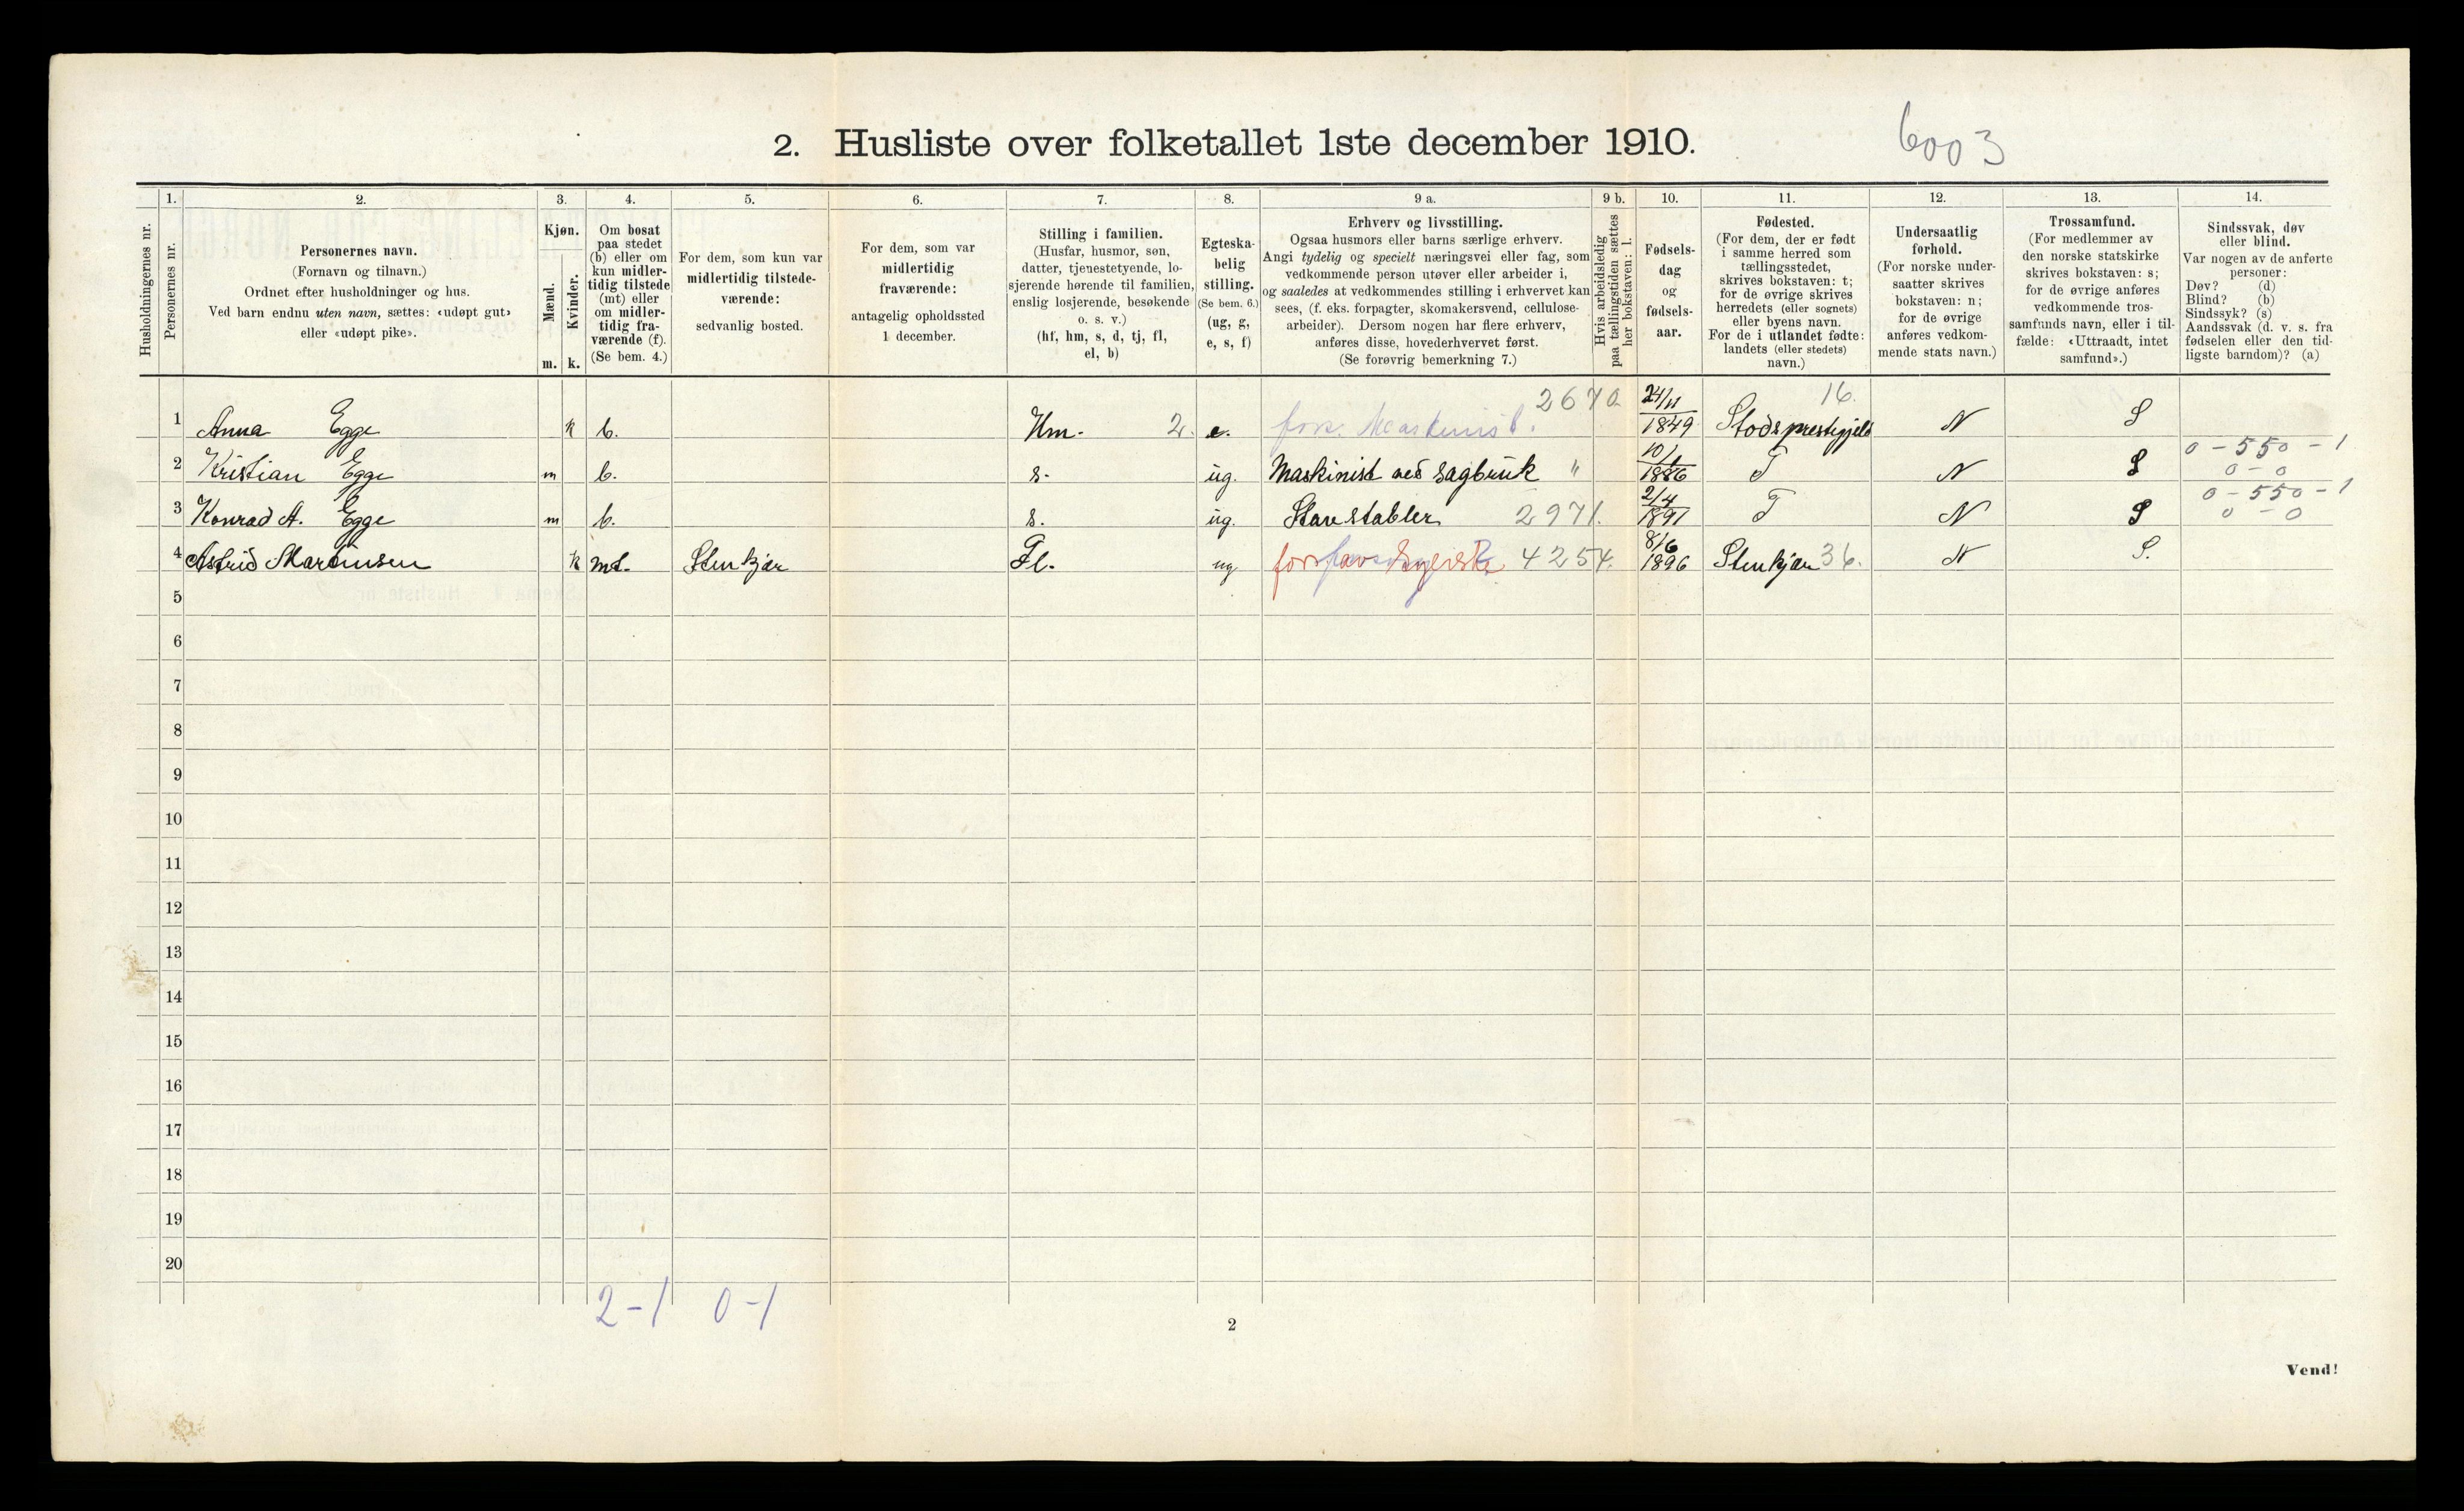 2. Husliste over folketallet 1ste december 1910.
6003
Husholdningernes nr.
1.
Personernes nr.
2.
Personernes navn.
(Fornavn og tilnavn.)
Ordnet efter husholdninger og hus.
Ved barn endnu uten navn, sættes: «udøpt gut»
eller «udøpt pike».
3.
Kjøn.
Mænd.
Kvinder.
m. k.
4.
Om bosat
paa stedet
(b) eller om
kun midler-
tidig tilstede
(mt) eller
om midler-
tidig fra-
værende (f).
(Se bem. 4.)
5.
For dem, som kun var
midlertidig tilstede-
værende:
sedvanlig bosted.
6.
For dem, som var
midlertidig
fraværende:
antagelig opholdssted
1 december.
7.
Stilling i familien.
(Husfar, husmor, søn,
datter, tjenestetyende, lo-
sjerende hørende til familien,
enslig losjerende, besøkende
o. s. v.)
(hf, hm, s, d, tj, fl,
el, b)
8.
Egteska-
belig
stilling.
(Se bem. 6.)
(ug, g,
e, s, f)
9 a.
Erhverv og livsstilling.
Ogsaa husmors eller barns særlige erhverv.
Angi tydelig og specielt næringsvei eller fag, som
vedkommende person utøver eller arbeider i,
og saaledes at vedkommendes stilling i erhvervet kan
sees, (f. eks. forpagter, skomakersvend, cellulose-
arbeider). Dersom nogen har flere erhverv,
anføres disse, hovederhvervet først.
(Se forøvrig bemerkning 7.)
9 b.
Hvis arbeidsledig
paa tællingstiden sættes
her bokstaven: l.
10.
Fødsels-
dag
og
fødsels-
aar.
11.
Fødested.
(For dem, der er født
i samme herred som
tællingsstedet,
skrives bokstaven: t;
for de øvrige skrives
herredets (eller sognets)
eller byens navn.
For de i utlandet fødte:
landets (eller stedets)
navn.)
12.
Undersaatlig
forhold.
(For norske under-
saatter skrives
bokstaven: n;
for de øvrige
anføres vedkom-
mende stats navn.)
13.
Trossamfund.
(For medlemmer av
den norske statskirke
skrives bokstaven: s;
for de øvrige anføres
vedkommende tros-
samfunds navn, eller i til-
fælde: «Uttraadt, intet
samfund».)
14.
Sindssvak, døv
eller blind.
Var nogen av de anførte
personer:
Døv? (d)
Blind? (b)
Sindssyk? (s)
Aandssvak (d. v. s. fra
fødselen eller den tid-
ligste barndom)? (a)
1 Anna Egge k b. Hm. 2. e. fors. Maskinist. 2670 24/11 1849 Stods prestegjeld 16. N S
2 Kristian Egge m b. s. ug. Maskinist ved sagbruk " 10/1 1886 T N S 0-550-1 0-0
3 Konrad A. Egge m b. s. ug. Stavstabler 2971. 2/4 1891 T N S 0-550-1 0-0
4 Astrid Martinsen k mt. Stenkjær Fl. ug 4254. 8/6 1896 Stenkjær 36. N S.
5
6
7
8
9
10
11
12
13
14
15
16
17
18
19
20
2-1 0-1
2
Vend!